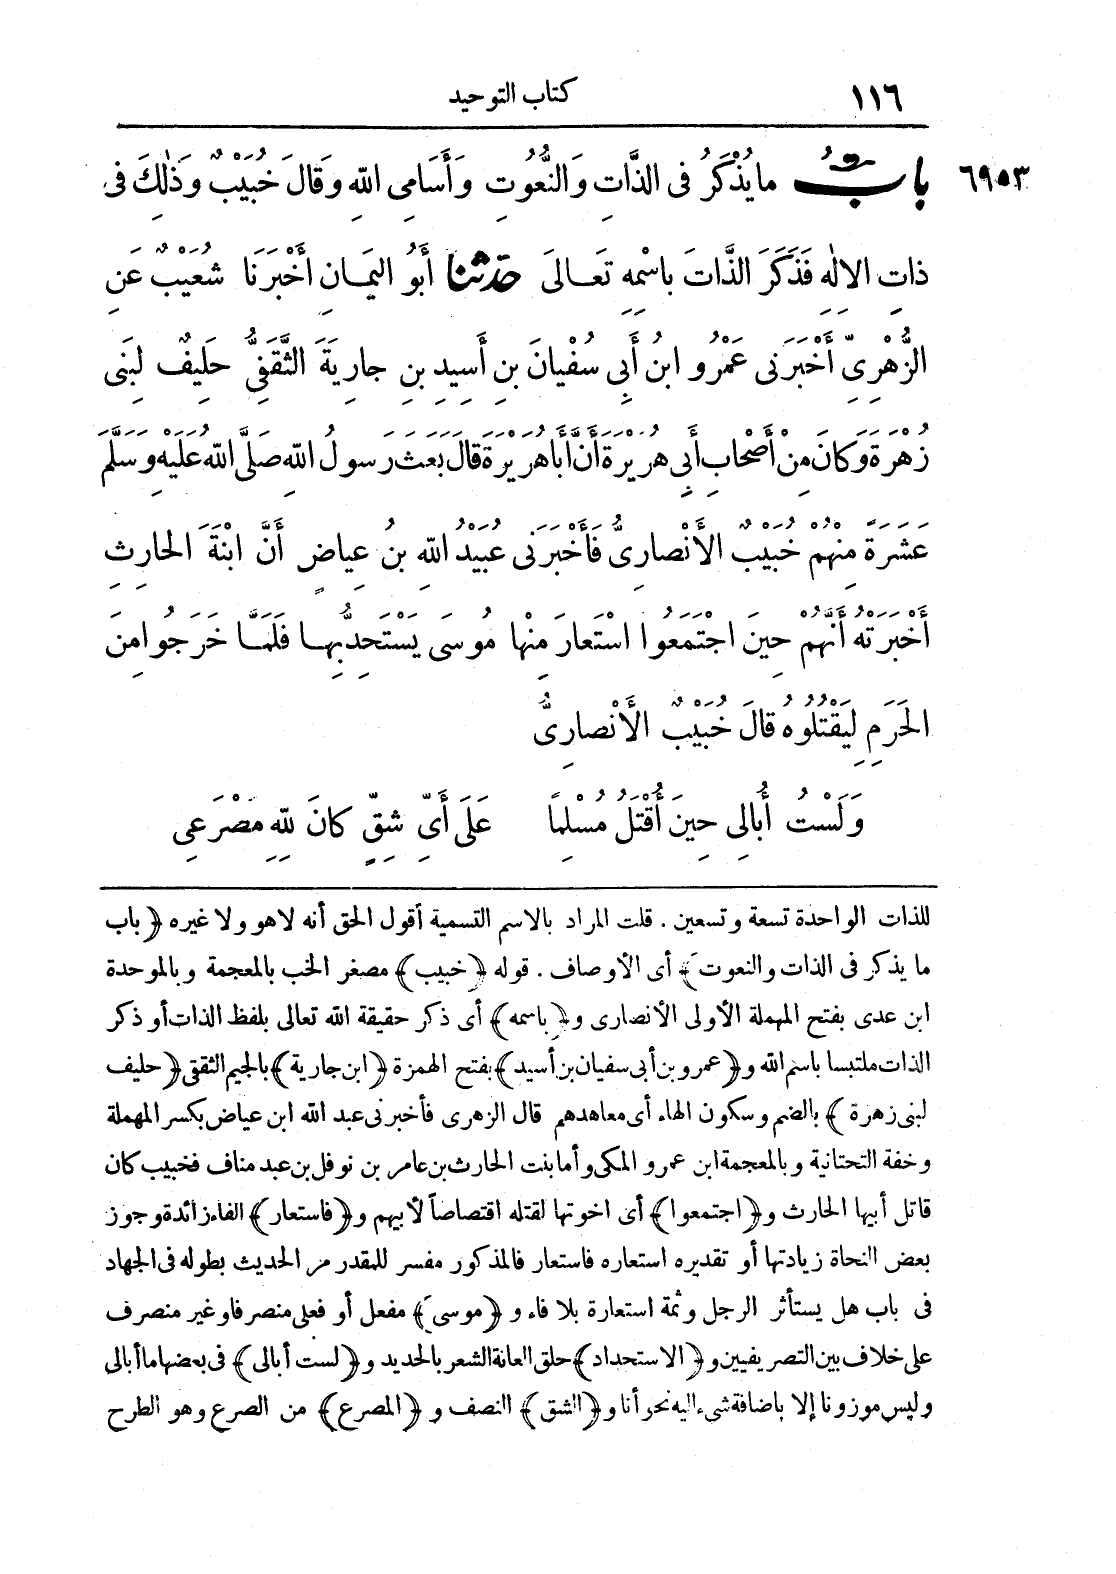 ١١٦ كتاب التوحيد
٦٩٥٣ بابُ مَا يُذْكَرُ فِى الذَّاتِ وَالنُّعُوتِ وَأَسَامِى اللهِ وَقَالَ خُبَيْبٌ وَذٰلِكَ فِى
ذَاتِ الاِلٰهِ فَذَكَرَ الذَّاتَ بِاسْمِهِ تَعَالَى حَدَّثَنَا أَبُو اليَمَانِ أَخْبَرَنَا شُعَيْبٌ عَنِ
الزُّهْرِىِّ أَخْبَرَنِى عَمْرُو ابنُ أَبِى سُفْيَانَ بنِ أَسِيدِ بنِ جَارِيَةَ الثَّقَفِىُّ حَلِيفٌ لِبَنِى
زُهْرَةَ وَكَانَ مِنْ أَصْحَابِ أَبِى هُرَيْرَةَ أَنَّ أَبَا هُرَيْرَةَ قَالَ بَعَثَ رَسُولُ اللهِ صَلَّى اللهُ عَلَيْهِ وَسَلَّمَ
عَشَرَةً مِنْهُمْ خُبَيْبٌ الأَنْصَارِىُّ فَأَخْبَرَنِى عُبَيْدُ اللهِ بنُ عِيَاضٍ أَنَّ ابْنَةَ الحَارِثِ
أَخْبَرَتْهُ أَنَّهُمْ حِينَ اجْتَمَعُوا اسْتَعَارَ مِنْهَا مُوسَى يَسْتَحِدُّ بِهَا فَلَمَّا خَرَجُوا مِنَ
الحَرَمِ لِيَقْتُلُوهُ قَالَ خُبَيْبٌ الأَنْصَارِىُّ
وَلَسْتُ أُبَالِى حِينَ أُقْتَلُ مُسْلِمًا عَلَى أَىِّ شِقٍّ كَانَ لِلّهِ مَصْرَعِى
للذات الواحدة تسعة وتسعين . قلت المراد بالاسم التسمية أقول الحق أنه لا هو ولا غيره ﴿باب
ما يذكر فى الذات والنعوت﴾ أى الأوصاف . قوله ﴿خبيب﴾ مصغر الخب بالمعجمة وبالموحدة
ابن عدى بفتح المهملة الأولى الأنصارى و﴿باسمه﴾ أى ذكر حقيقة الله تعالى بلفظ الذات أو ذكر
الذات ملتبسا باسم الله و﴿عمرو بن أبى سفيان بن أسيد﴾ بفتح الهمزة ﴿ابن جارية﴾ بالجيم الثقفى ﴿حليف
لبنى زهرة﴾ بالضم وسكون الهاء أى معاهدهم قال الزهرى فأخبرنى عبد الله ابن عياض بكسر المهملة
وخفة التحتانية وبالمعجمة ابن عمرو المكى وأما بنت الحارث بن عامر بن نوفل بن عبد مناف فخبيب كان
قاتل أبيها الحارث و﴿اجتمعوا﴾ أى اخوتها لقتله اقتصاصاً لأبيهم و﴿فاستعار﴾ الفاء زائدة وجوز
بعض النحاة زيادتها أو تقديره استعاره فاستعار فالمذكور مفسر للمقدر مر الحديث بطوله فى الجهاد
فى باب هل يستأثر الرجل وثمة استعارة بلا فاء و﴿موسى﴾ مفعل أو فعلى منصرف او غير منصرف
على خلاف بين التصريفيين و﴿الاستحداد﴾ حلق العانة الشعر بالحديد و﴿لست أبالى﴾ فى بعضها ما أبالى
وليس موزونا إلا باضافة شىء اليه نحو أنا و﴿الشق﴾ النصف و﴿المصرع﴾ من الصرع وهو الطرح